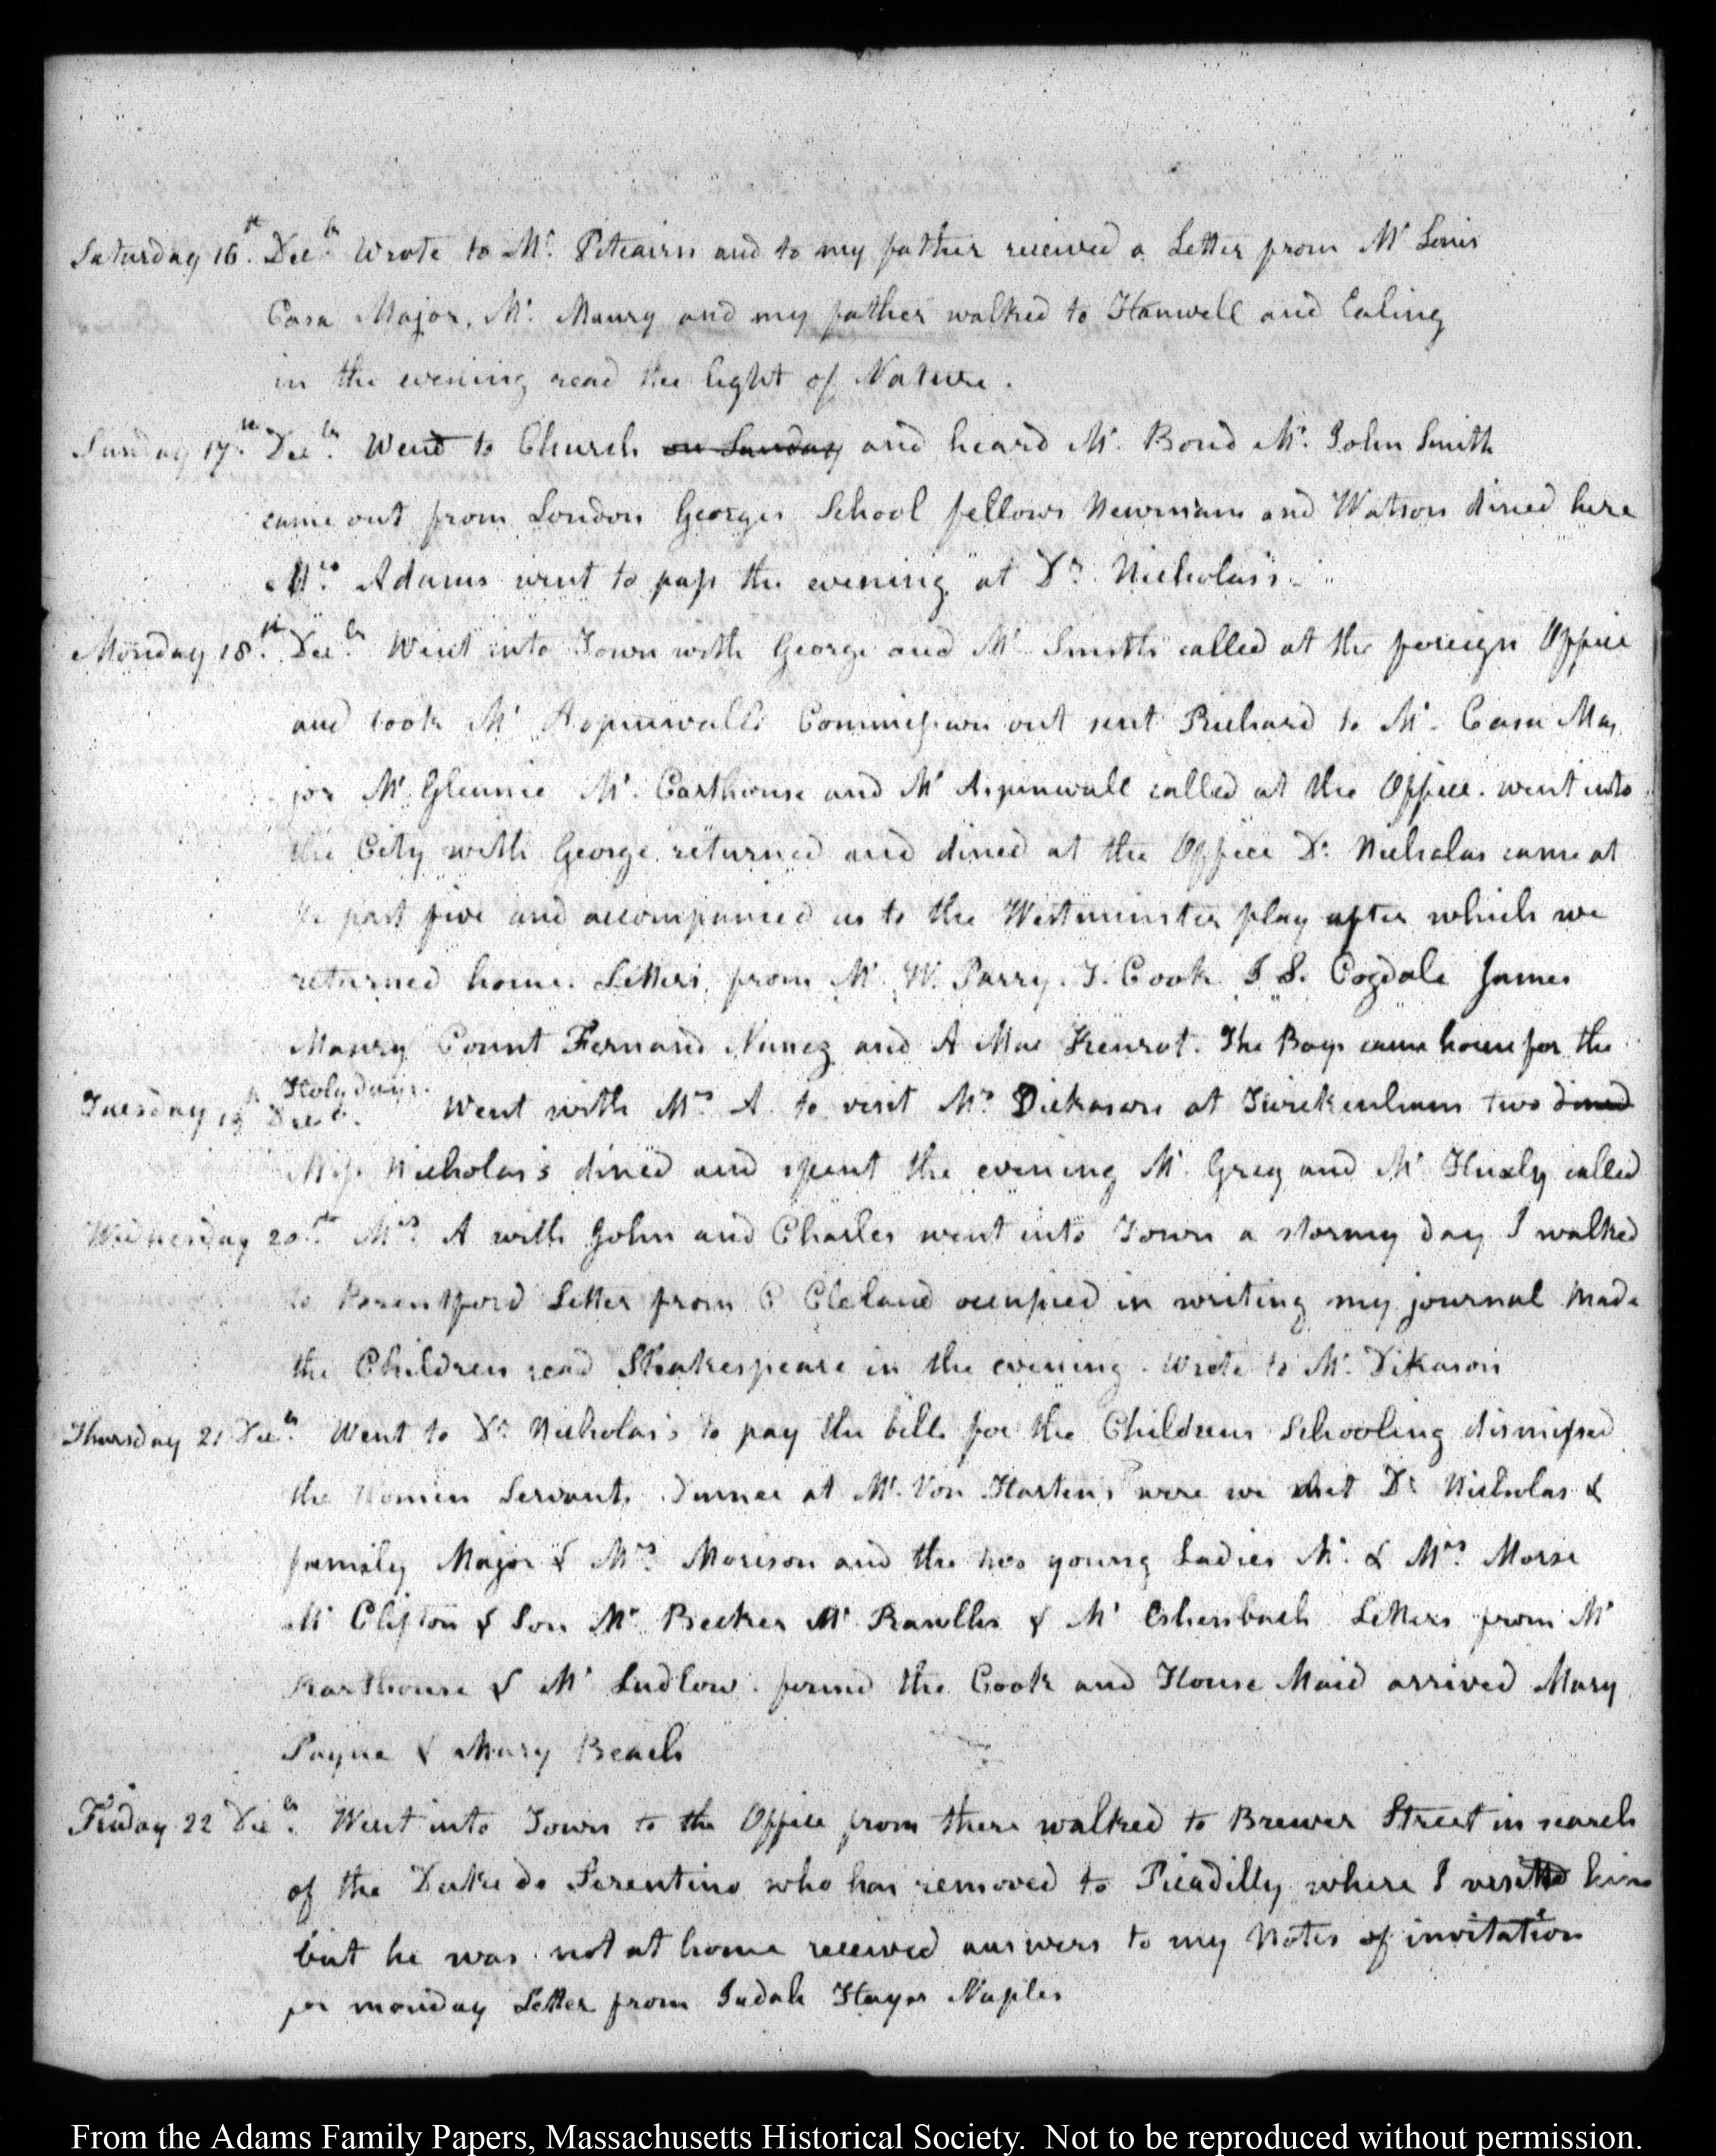 Saturday 16th Decbr Wrote to Mr. Pitcairn and to my father received a Letter from Mr Louis
Casa Major, Mr. Maury and my father walked to Hanwell and Ealing
in the evening read the light of Nature.
Sunday 17th Decbr Went to Church on Sunday and heard Mr. Bond Mr. John Smith
came out from London Georges School fellows Newman and Watson dined here
Mrs. Adams went to pass the evening at Dr. Nicholas's
Monday 18th Decbr Went into Town with George and Mr Smith called at the foreign Office
and took Mr Aspinwalls Commission out sent Richard to Mr. Casa Ma,
jor Mr. Glennie Mr. Carthouse and Mr Aspinwall called at the Office. went into
the City with George returned and dined at the Office Dr. Nicholas came at
past five and accompanied us to the Westminster play after which we
returned home. Letters from Mr. W. Parry. J. Cook J S. Cogdale James
Maury Count Fernand Nunez and A Mac The Boys came home for the
Holydays.
Tuesday 19th Decbr. Went with Mrs A. to visit Mrs Dickason at Twickenham two dined
Miss Nicholas's dined and spent the evening Mr. Greg and Mr Huxly called
Wednesday 20th Mrs. A with John and Charles went into Town a stormy day I walked
to Brentford Letter from C Cleland occupied in writing my journal Made
the Children read Shakespeare in the evening. Wrote to Mr. Dikason
Thursday 21 Decbr. Went to Dr. Nicholas's to pay the bills for the Childrens Schooling dismissed
the Women Servants. Dinner at Mr. Von Harten's were we met Dr. Nicholas &
family Major & Mrs. Morison and the two young Ladies Mr. & Mrs. Morse
Mr Clifton & Son Mr. Becker Mr Rawlls & Mr Eshenbach Letters from Mr
Karthouse & Mr Ludlow. found the Cook and House Maid arrived Mary
Payne & Mary Beach
Friday 22 Decbr. Went into Town to the Office from there walked to Brewer Street in search
of the Duke de Serentino who has removed to Picadilly where I visited him
but he was not at home received answers to my Notes of invitation
for monday Letter from Judah Hays Naples
From the Adams Family Papers, Massachusetts Historical Society. Not to be reproduced without permission.